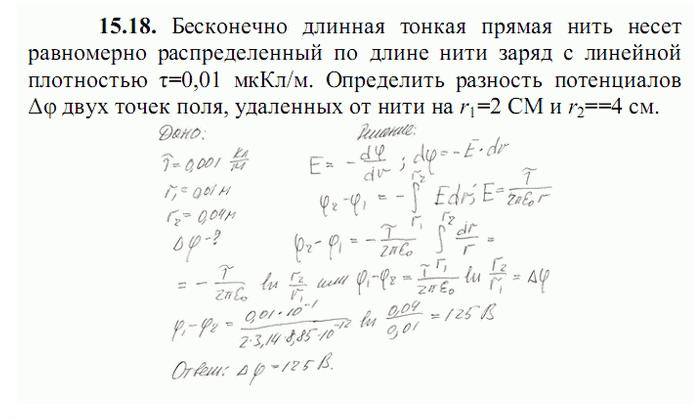 15.18. Бесконечно длинная тонкая прямая нить несет
равномерно распределенный по длине нити заряд с линейной
плотностью τ=0,01 мкКл/м. Определить разность потенциалов
Δφ двух точек поля, удаленных от нити на r₁=2 СМ и r₂==4 см.
Дано:
τ = 0,001 Кл/м
r₁ = 0,01 м
r₂ = 0,04 м
Δφ - ?
Решение:
E = - dφ/dr ; dφ = -E · dr
φ₂ - φ₁ = - ∫_{r₁}^{r₂} E dr; E = τ/2πε₀r
φ₂ - φ₁ = - τ/2πε₀ ∫_{r₁}^{r₂} dr/r =
= - τ/2πε₀ ln r₂/r₁ или φ₁ - φ₂ = τ/2πε₀ ln r₂/r₁ = Δφ
φ₁ - φ₂ = 0,01·10⁻¹/2·3,14·8,85·10⁻¹² ln 0,04/0,01 = 125 В
Ответ: Δφ = 125 В.